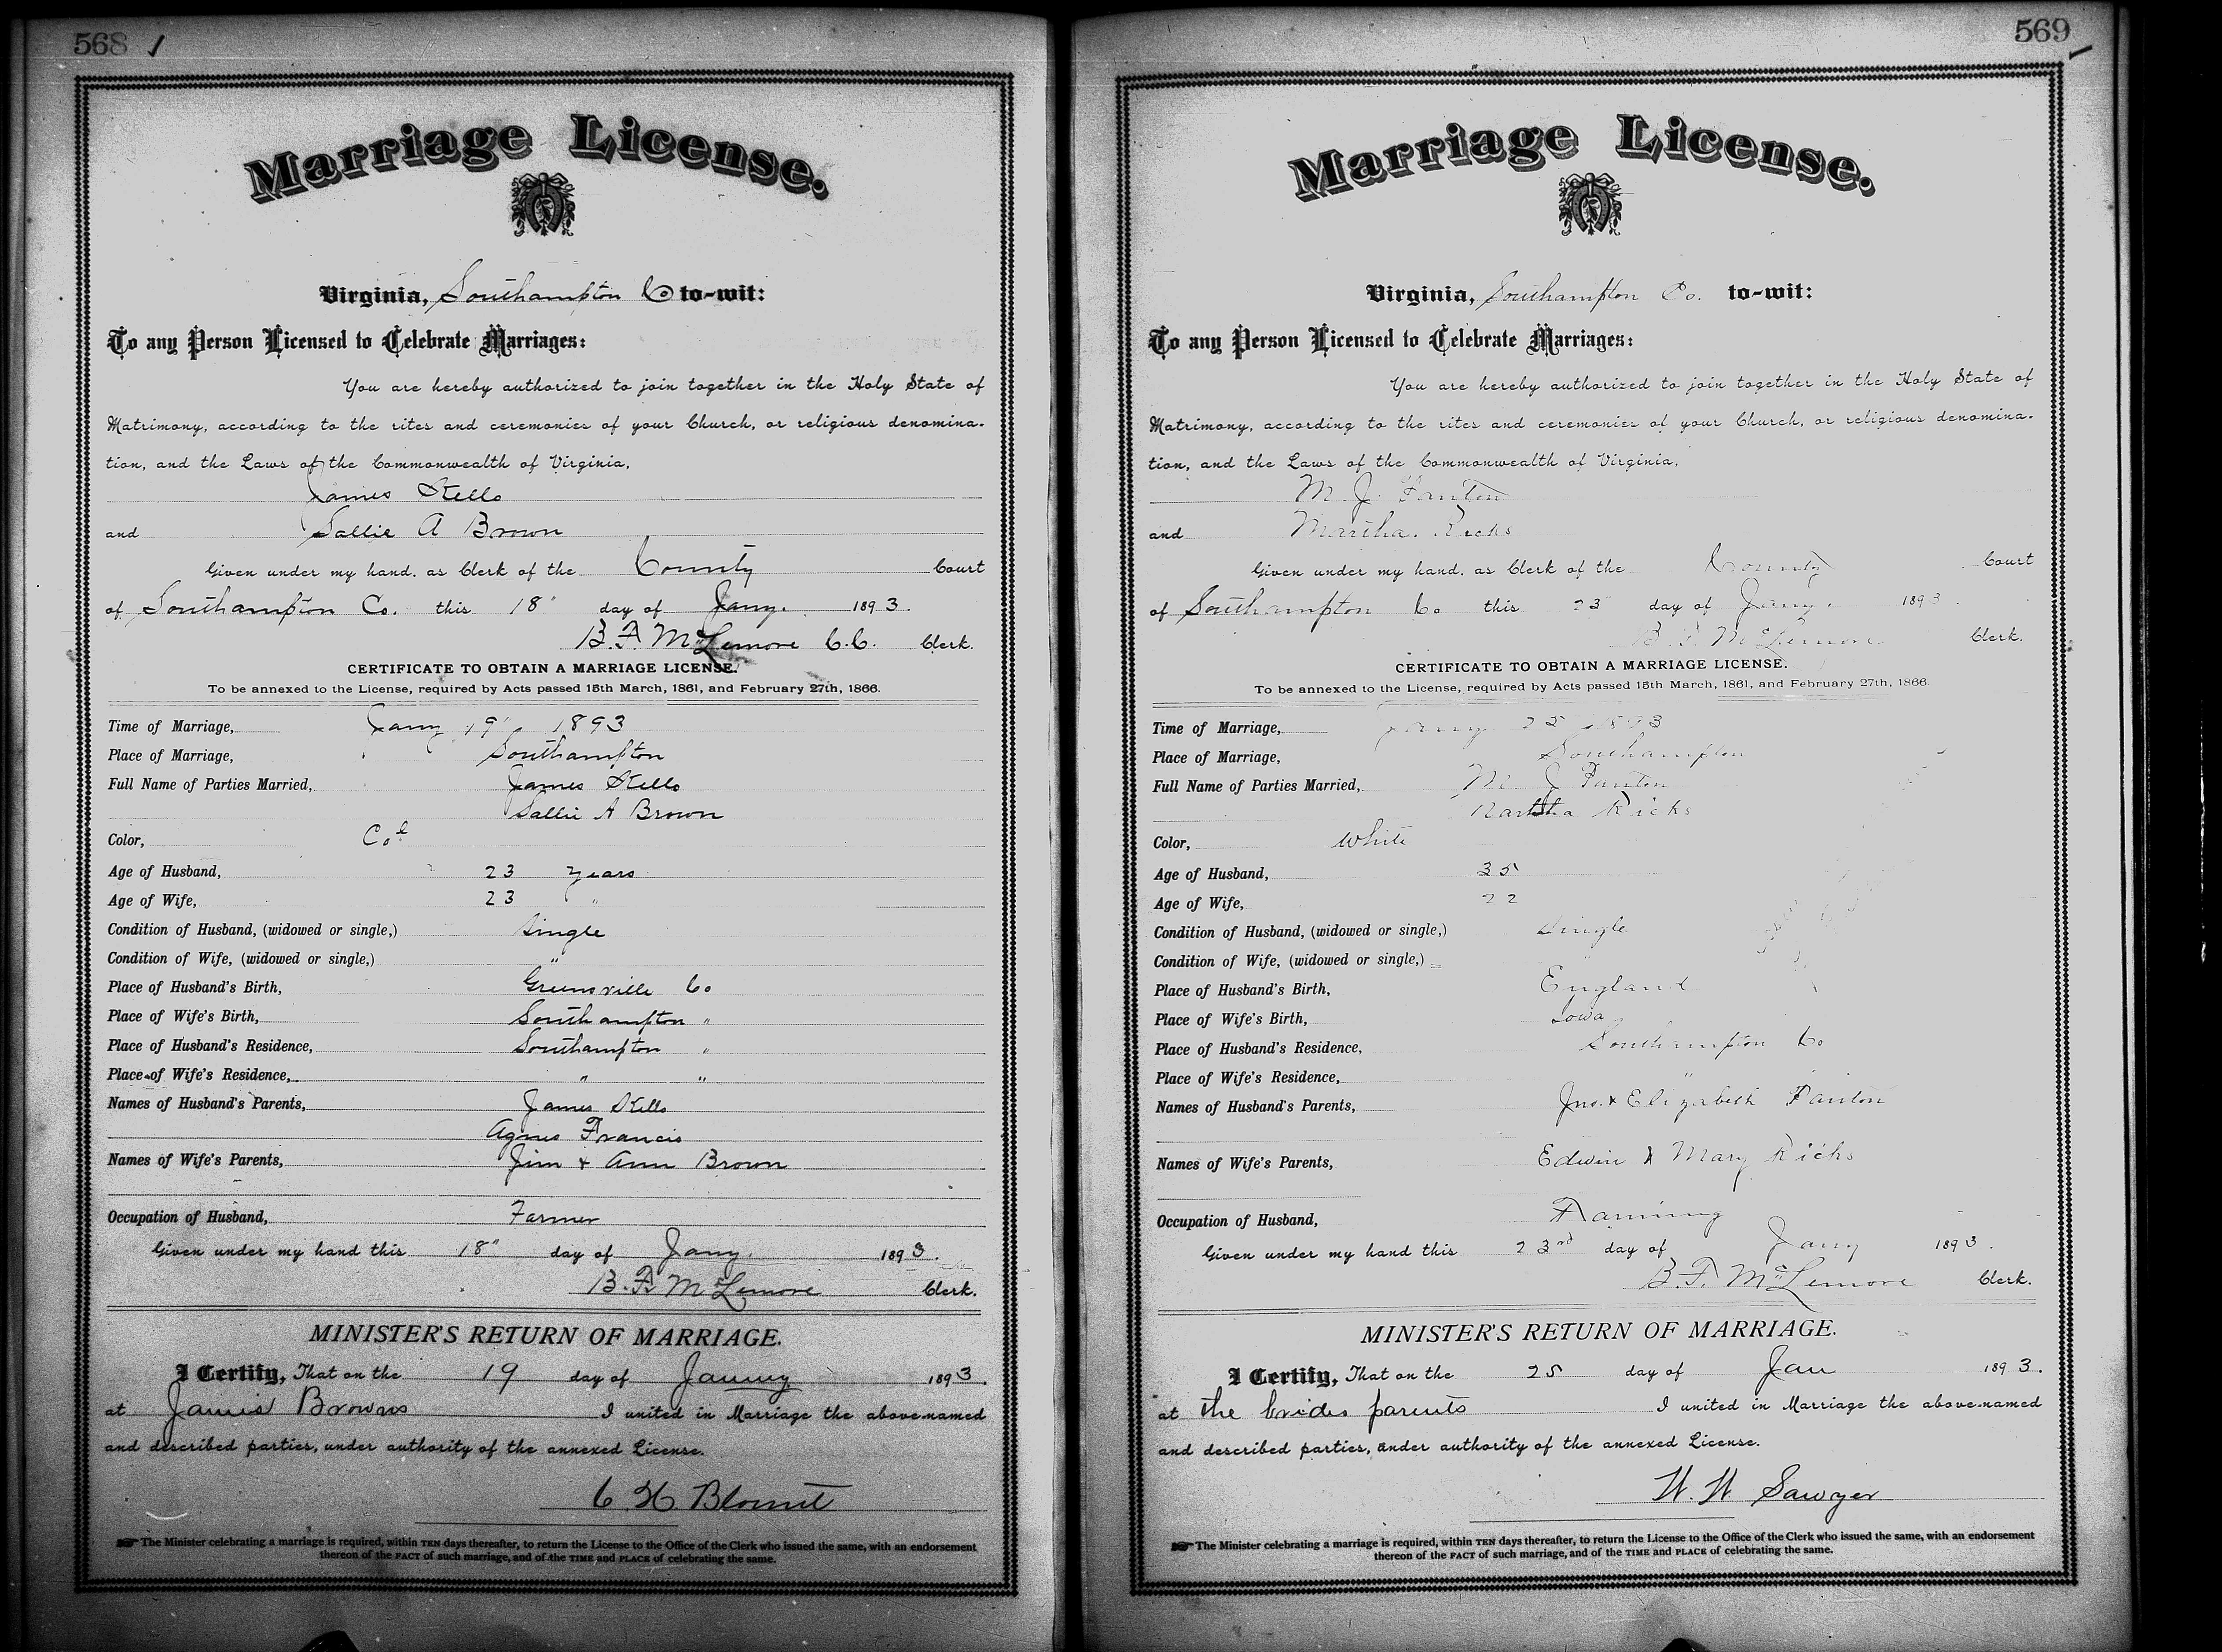 568
Marriage License.
Virginia, Southampton Co to-wit:
To any Person Licensed to Celebrate Marriages:
You are hereby authorized to join together in the Holy State of
Matrimony, according to the rites and ceremonies of your Church, or religious denomina-
tion, and the Laws of the Commonwealth of Virginia,
James
and Sallie A Brown
Given under my hand, as Clerk of the County Court
of Southampton Co. this 18" day of Jany. 1893.
B. F. McLemore C.C. Clerk.
CERTIFICATE TO OBTAIN A MARRIAGE LICENSE.
To be annexed to the License, required by Acts passed 15th March, 1861, and February 27th, 1866.
Time of Marriage, Jany 19" 1893
Place of Marriage, Southampton
Full Name of Parties Married, James
Sallie A Brown
Color, Cold
Age of Husband, 23 years
Age of Wife, 23 "
Condition of Husband, (widowed or single,) Single
Condition of Wife, (widowed or single,) "
Place of Husband's Birth, Greensville Co
Place of Wife's Birth, Southampton "
Place of Husband's Residence, Southampton "
Place of Wife's Residence, " "
Names of Husband's Parents, James
Agnes Francis
Names of Wife's Parents, Jim & Ann Brown
Occupation of Husband, Farmer
Given under my hand this 18" day of Jany. 1893.
B. F. McLemore Clerk.
MINISTER'S RETURN OF MARRIAGE.
I Certify, That on the 19 day of 1893.
at James Browns I united in Marriage the above-named
and described parties, under authority of the annexed License.
C. H. Blount
The Minister celebrating a marriage is required, within TEN days thereafter, to return the License to the Office of the Clerk who issued the same, with an endorsement
thereon of the FACT of such marriage, and of the TIME and PLACE of celebrating the same.
569
Marriage License.
Virginia, Southampton Co. to-wit:
To any Person Licensed to Celebrate Marriages:
You are hereby authorized to join together in the Holy State of
Matrimony, according to the rites and ceremonies of your Church, or religious denomina-
tion, and the Laws of the Commonwealth of Virginia,
M. J. Panton
and Martha Ricks
Given under my hand, as Clerk of the County Court
of Southampton Co this 23 day of Jany. 1893.
B. F. McLemore Clerk.
CERTIFICATE TO OBTAIN A MARRIAGE LICENSE.
To be annexed to the License, required by Acts passed 15th March, 1861, and February 27th, 1866.
Time of Marriage, Jany 25 1893
Place of Marriage, Southampton
Full Name of Parties Married, M J Panton
Martha Ricks
Color, White
Age of Husband, 35
Age of Wife, 22
Condition of Husband, (widowed or single,) Single
Condition of Wife, (widowed or single,)
Place of Husband's Birth, England
Place of Wife's Birth, Iowa
Place of Husband's Residence, Southampton Co
Place of Wife's Residence, "
Names of Husband's Parents, Jno. & Elizabeth Panton
Names of Wife's Parents, Edwin & Mary Ricks
Occupation of Husband, Farming
Given under my hand this 23rd day of Jany 1893.
B. F. McLemore Clerk.
MINISTER'S RETURN OF MARRIAGE.
I Certify, That on the 25 day of Jan 1893.
at the brides parents I united in Marriage the above-named
and described parties, under authority of the annexed License.
W. W. Sawyer
The Minister celebrating a marriage is required, within TEN days thereafter, to return the License to the Office of the Clerk who issued the same, with an endorsement
thereon of the FACT of such marriage, and of the TIME and PLACE of celebrating the same.